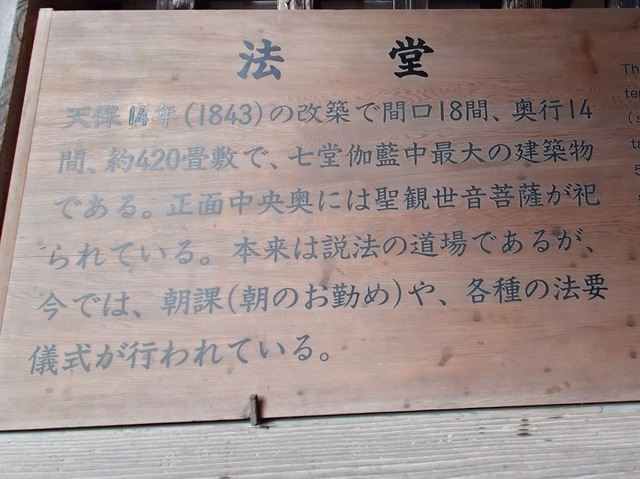 法堂
天保14年(1843)の改築で間口18間、奥行14
間、約420畳敷で、七堂伽藍中最大の建築物
である。正面中央奥には聖観世音菩薩が祀
られている。本来は説法の道場であるが、
今では、朝課(朝のお勤め)や、各種の法要
儀式が行われている。
Th
te
(s
ta
5